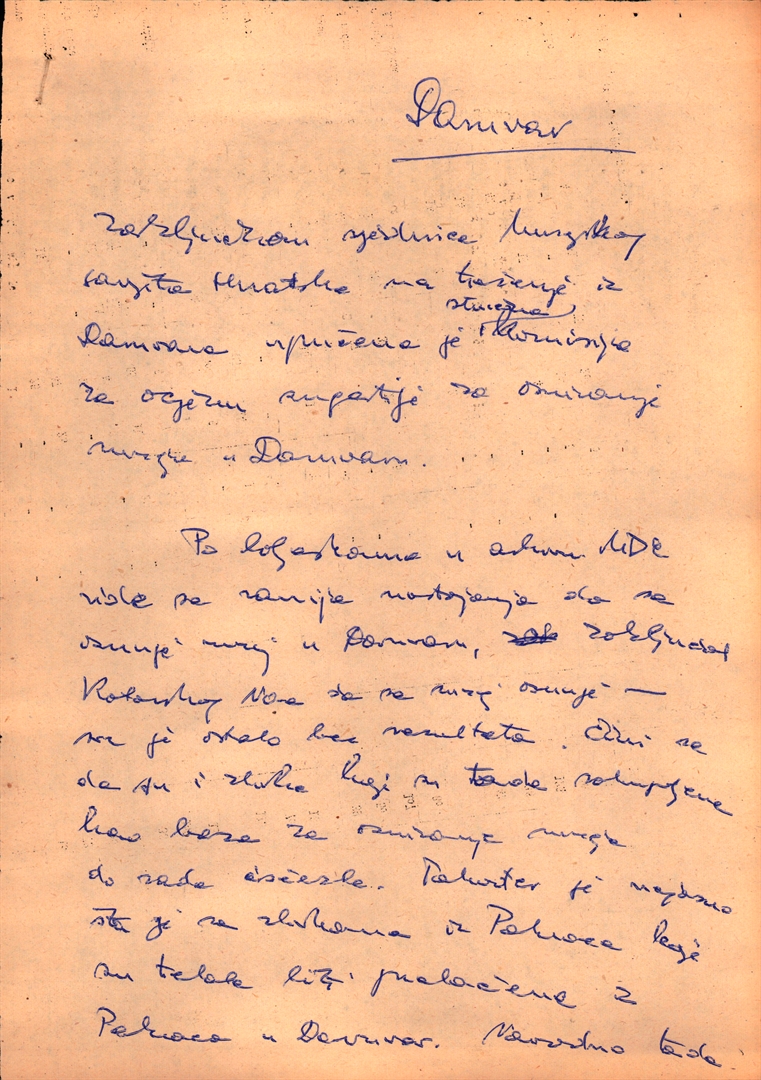 Daruvar
Zaključkom sjednice Muzejskog
savjeta Hrvatske na traženje iz
stručna
Daruvara upućena je komisija
za ocjenu sugestije za osnivanje
muzeja u Daruvaru.
Po bilješkama u arhivu MDC
vide se ranija nastojanja da se
osnuje muzej u Daruvaru, zaključak
Kotarskog NO-a da se muzej osnuje —
sve je ostalo bez rezultata. Čini se
da su i zbirke koje su tada sakupljene
kao baza za osnivanje muzeja
do sada iščezle. Također je nejasno
šta je sa zbirkama iz Pakraca koje
su trebale biti prebačene iz
Pakraca u Daruvar. Navodno tada